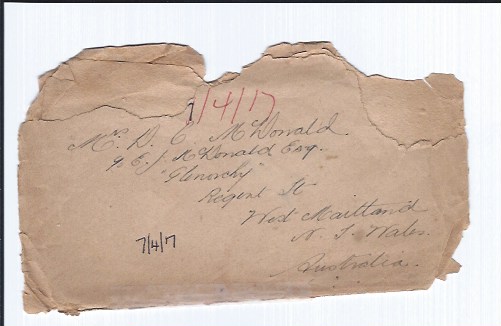 1/4/17
Mr. D. C. McDonald.
% E. J. McDonald Esq.
"Glenorchy"
Regent St
West Maitland
N. S. Wales.
Australia.
7/4/17